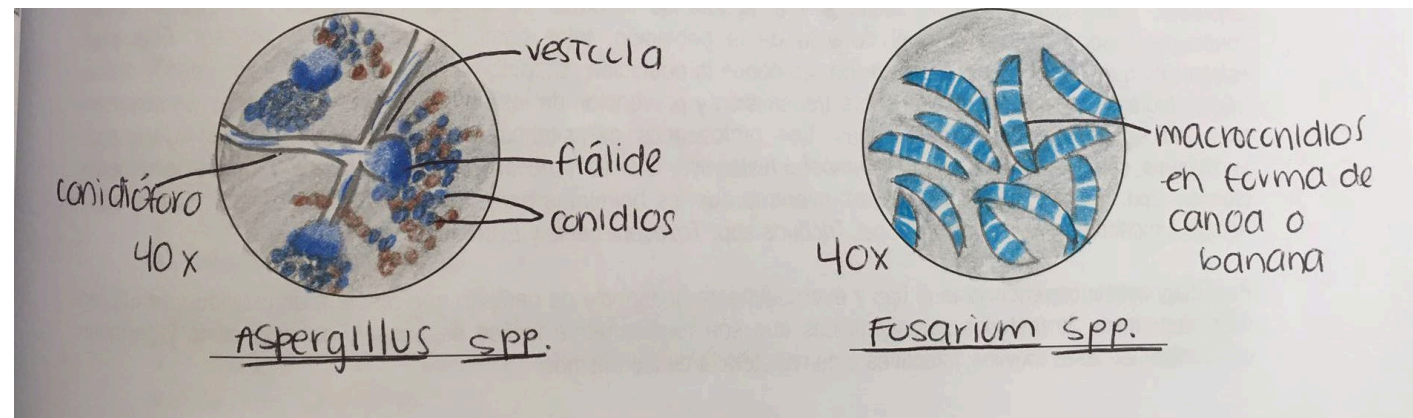 vesícula
fiálide
conidios
conidióforo
40x
Aspergillus spp.
macroconidios
en forma de
canoa o
banana
40x
Fusarium spp.